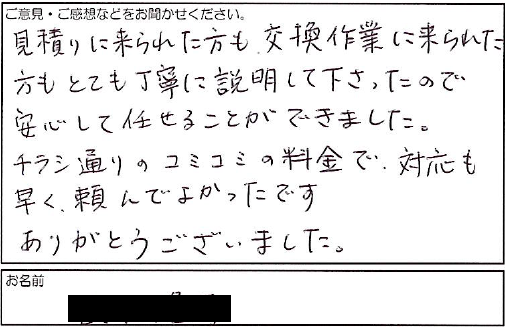 ご意見・ご感想などをお聞かせください。
見積りに来られた方も、交換作業に来られた
方もとても丁寧に説明して下さったので
安心して任せることができました。
チラシ通りのコミコミの料金で、対応も
早く、頼んでよかったです
ありがとうございました。
お名前